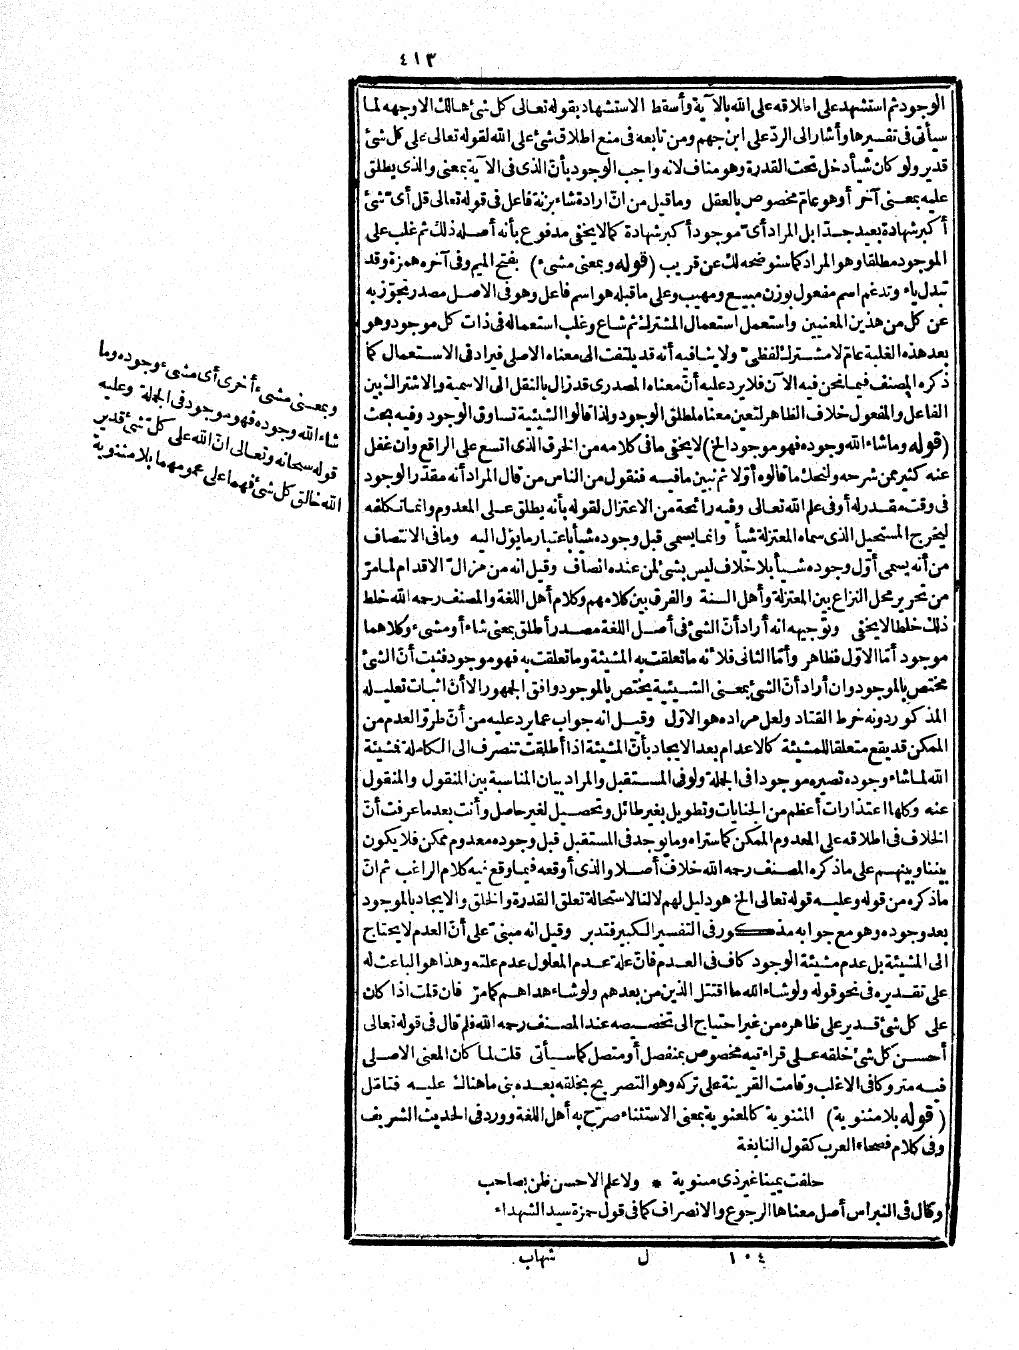 ٤١٣
الوجود ثم استشهد على اطلاقه على الله بالآية وأسقط الاستشهاد بقوله تعالى كل شئ هالك الا وجهه لما
سيأتى فى تفسيرها وأشار الى الردّ على ابن جهم ومن تابعه فى منع اطلاق شئ على الله لقوله تعالى على كل شئ
قدير ولو كان شيأ دخل تحت القدرة وهو مناف لانه واجب الوجود بأنّ الذى فى الآية بمعنى والذى يطلق
عليه بمعنى آخر أو هو عامّ مخصوص بالعقل وما قيل من انّ ارادة شاء بزنة فاعل فى قوله تعالى قل أىّ شئ
أكبر شهادة بعيد جدّا بل المراد أىّ موجود أكبر شهادة كما لا يخفى مدفوع بأنه أصله ذلك ثم غلب على
الموجود مطلقا وهو المراد كما سنوضحه لك عن قريب (قوله وبمعنى مشىء) بفتح الميم وفى آخره همزة وقد
تبدل ياء وتدغم اسم مفعول بوزن مبيع ومهيب وعلى ما قبله هو اسم فاعل وهو فى الاصل مصدر تجوّز به
عن كل من هذين المعنيين واستعمل استعمال المشترك ثم شاع وغلب استعماله فى ذات كل موجود وهو
بعد هذه الغلبة عامّ لا مشترك لفظىّ ولا ينافيه أنه قد يلتفت الى معناه الاصلى فيراد فى الاستعمال كما
ذكره المصنف فيما نحن فيه الآن فلا يرد عليه أنّ معناه المصدرى قد زال بالنقل الى الاسمية والاشتراك بين
الفاعل والمفعول خلاف الظاهر لتعين معناه لمطلق الوجود ولذا قالوا الشيئية تساوق الوجود وفيه بحث
(قوله وما شاء الله وجوده فهو موجود الخ) لا يخفى ما فى كلامه من الخرق الذى اتسع على الراقع وان غفل
عنه كثير ممن شرحه ولنحك ما قالوه أوّلا ثم نبين ما فيه فنقول من الناس من قال المراد أنه مقدّر الوجود
فى وقت مقدر له أو فى علم الله تعالى وفيه رائحة من الاعتزال لقوله بأنه يطلق على المعدوم وانما تكلفه
ليخرج المستحيل الذى سماه المعتزلة شيأ وانما يسمى قبل وجوده شيأ باعتبار ما يؤل اليه وما فى الانتصاف
من أنه يسمى أوّل وجوده شيأ بلا خلاف ليس بشئ لمن عنده انصاف وقيل انه من مزالّ الاقدام لما مرّ
من تحرير محل النزاع بين المعتزلة وأهل السنة والفرق بين كلامهم وكلام أهل اللغة والمصنف رحمه الله خلط
ذلك خلطا لا يخفى وتوجيهه انه أراد أنّ الشئ فى أصل اللغة مصدر أطلق بمعنى شاء أو مشىء وكلاهما
موجود أمّا الاوّل فظاهر وأمّا الثانى فلأنه ما تعلقت به المشيئة وما تعلقت به فهو موجود فثبت أنّ الشئ
مختص بالموجود وان أراد أنّ الشئ بمعنى الشيئية يختص بالموجود وافق الجمهور الا أنّ اثبات تعليله
المذكور دونه خرط القتاد ولعل مراده هو الاوّل وقيل انه جواب عما يرد عليه من أنّ طروّ العدم من
الممكن قد يقع متعلقا للمشيئة كالاعدام بعد الايجاد بأنّ المشيئة اذا أطلقت تنصرف الى الكاملة فمشيئة
الله لما شاء وجوده تصيره موجودا فى الجملة ولو فى المستقبل والمراد بيان المناسبة بين المنقول والمنقول
عنه وكلها اعتذارات أعظم من الجنايات وتطويل بغير طائل وتحصيل لغير حاصل وأنت بعد ما عرفت أنّ
الخلاف فى اطلاقه على المعدوم الممكن كما ستراه وما يوجد فى المستقبل قبل وجوده معدوم ممكن فلا يكون
بيننا وبينهم على ما ذكره المصنف رحمه الله خلاف أصلا والذى أوقعه فيما وقع فيه كلام الراغب ثم انّ
ما ذكره من قوله وعليه قوله تعالى الخ هو دليل لهم لا لنا لاستحالة تعلق القدرة والخلق والايجاد بالموجود
بعد وجوده وهو مع جوابه مذكور فى التفسير الكبير فتدبر وقيل انه مبنىّ على أنّ العدم لا يحتاج
الى المشيئة بل عدم مشيئة الوجود كاف فى العدم فانّ علة عدم المعلول عدم علته وهذا هو الباعث له
على تقديره فى نحو قوله ولو شاء الله ما اقتتل الذين من بعدهم ولو شاء هداهم كما مرّ فان قلت اذا كان
على كل شئ قدير على ظاهره من غير احتياج الى تخصيصه عند المصنف رحمه الله فلم قال فى قوله تعالى
أحسن كل شئ خلقه على قراءتيه مخصوص بمنفصل أو متصل كما سيأتى قلت لما كان المعنى الاصلى
فيه متروكا فى الاغلب وقامت القرينة على تركه وهو التصريح بخلقه بعده بنى ما هنالك عليه فتأمّل
(قوله بلا مثنوية) المثنوية كالمعنوية بمعنى الاستثناء صرّح به أهل اللغة وورد فى الحديث الشريف
وفى كلام فصحاء العرب كقول النابغة
حلفت يمينا غير ذى مثنوية * ولا علم الا حسن ظن بصاحب
وقال فى النبراس أصل معناها الرجوع والانصراف كما فى قول حمزة سيد الشهداء
وبمعنى مشىء أخرى أى مشىء وجوده وما
شاء الله وجوده فهو موجود فى الجملة وعليه
قوله سبحانه وتعالى انّ الله على كل شئ قدير
الله خالق كل شئ فهما على عمومهما بلا مثنوية
١٠٤ ل شهاب